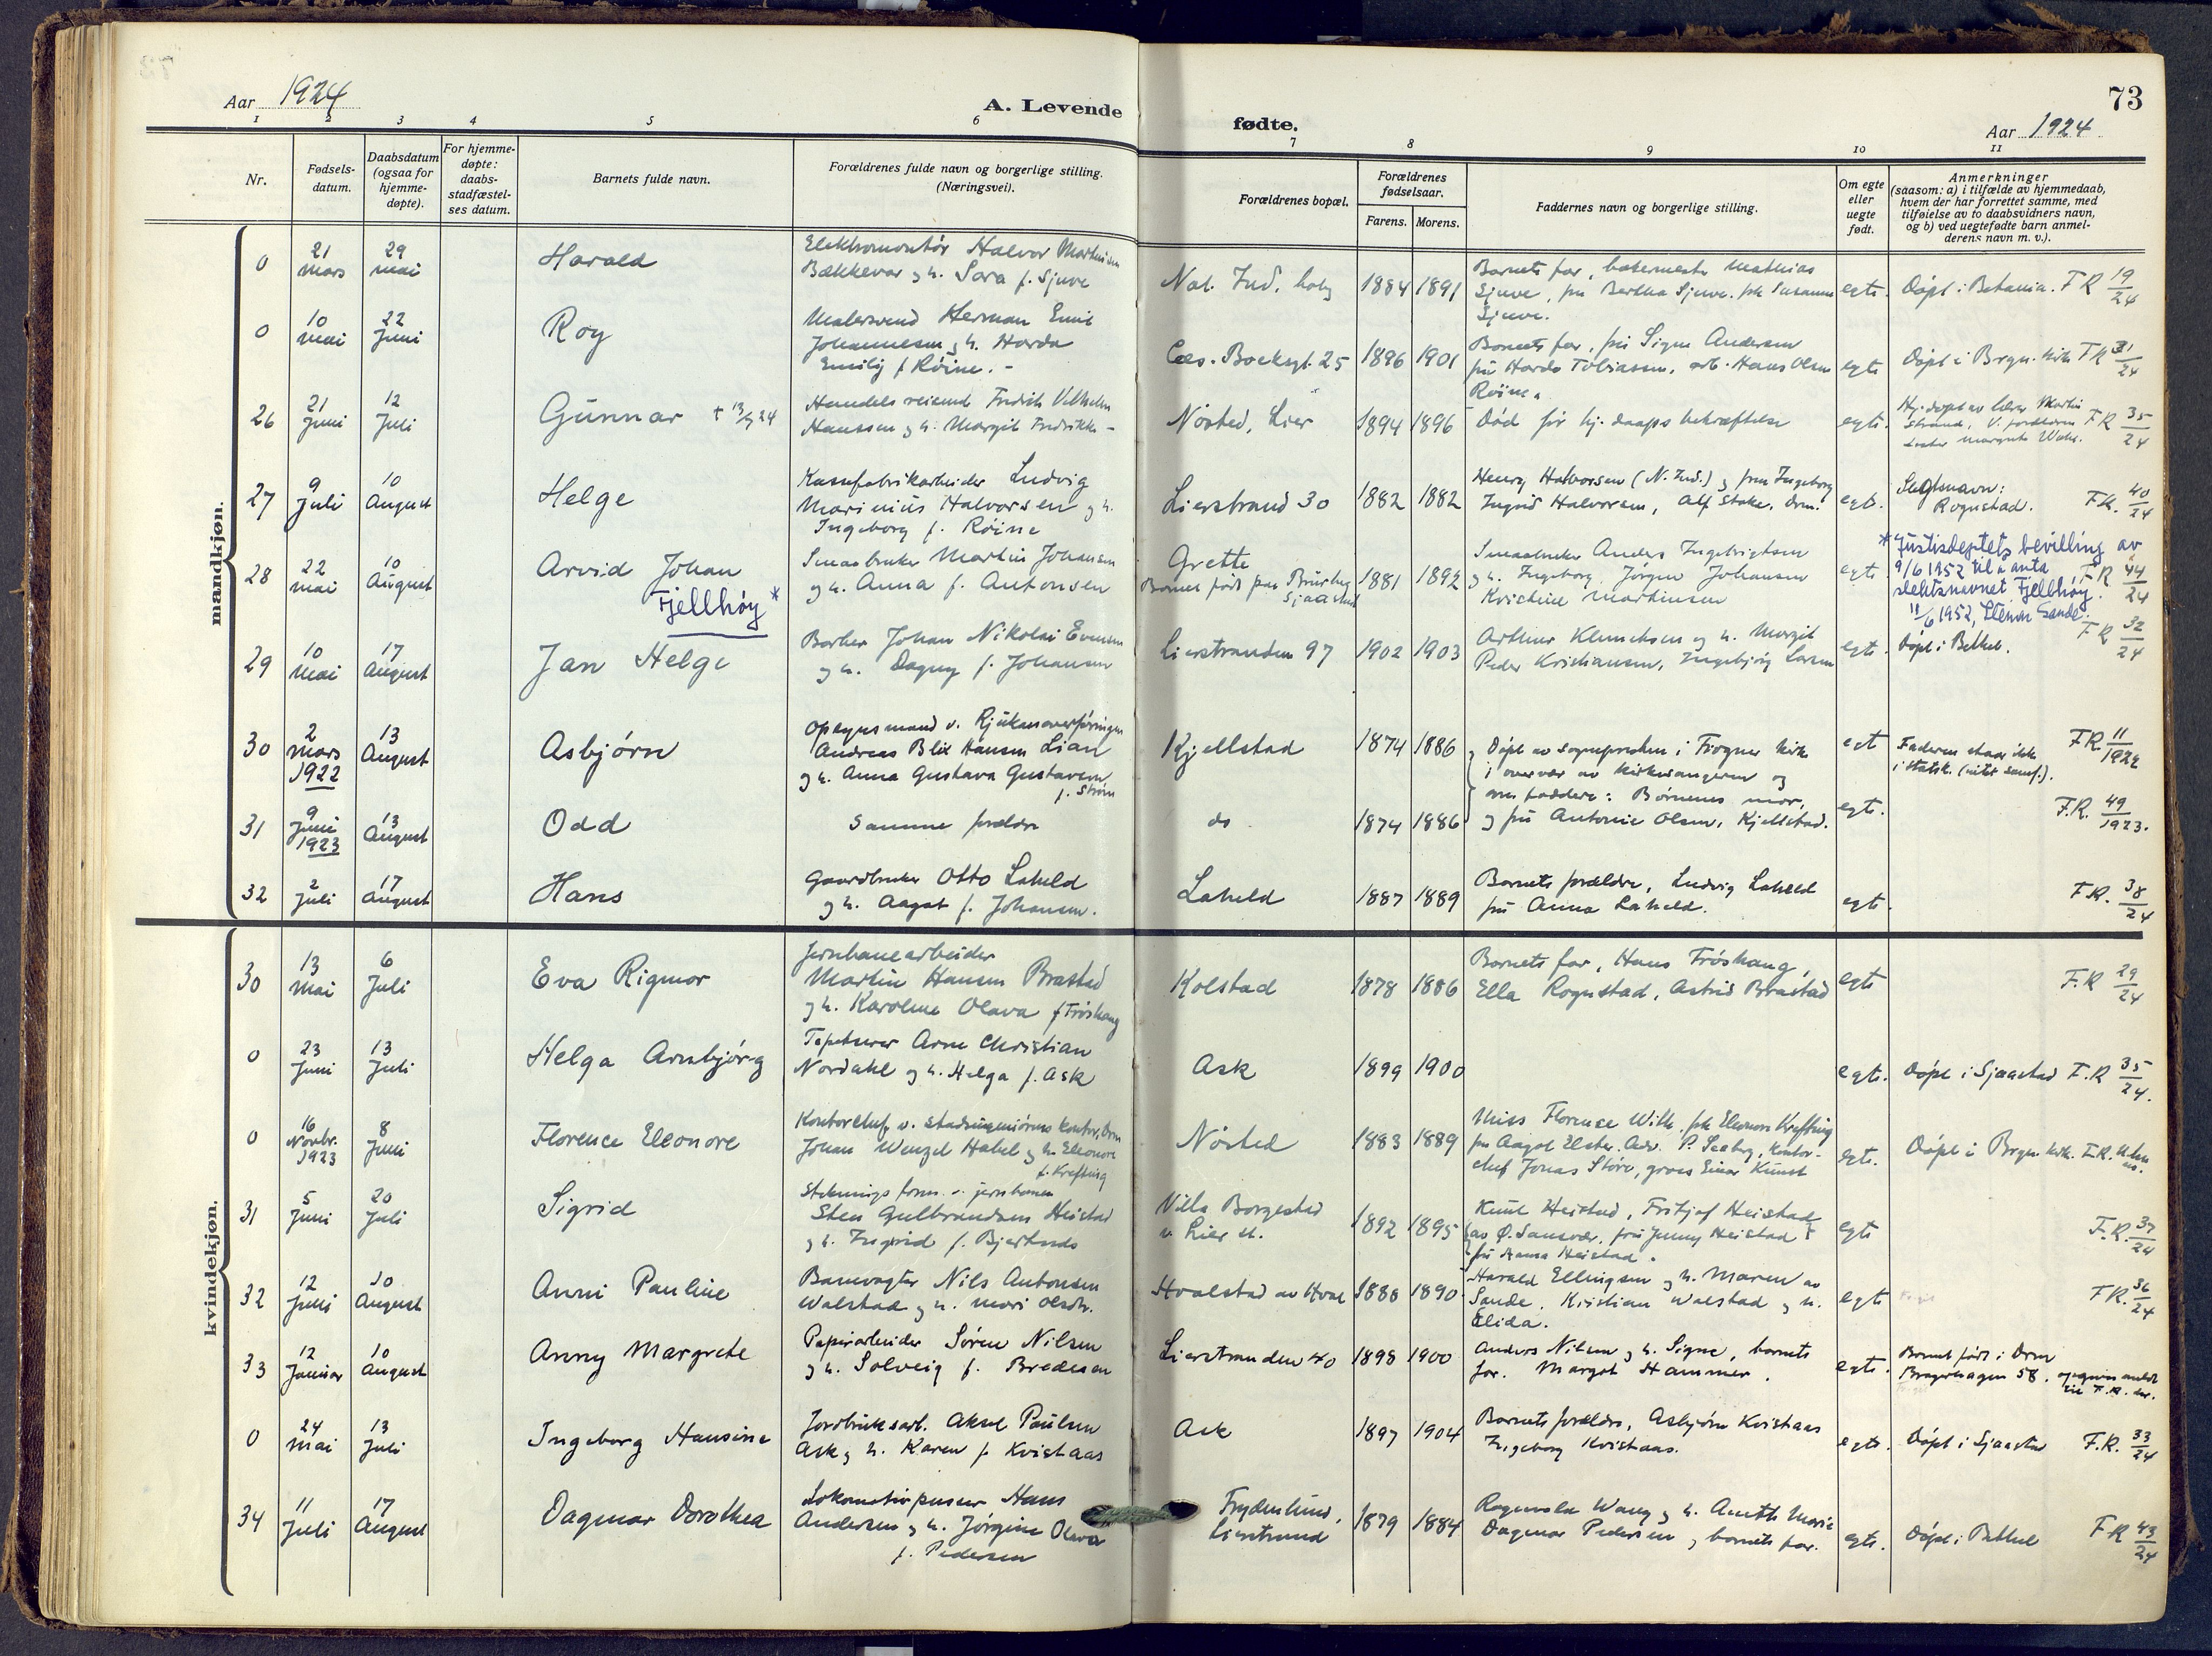 73
Aar 1924
A. Levende
fødte.
Aar 1924
1 2 3 4 5 6 7 8 9 10 11
Nr.
Fødsels-
datum.
Daabsdatum
(ogsaa for
hjemme-
døpte).
For hjemme-
døpte:
daabs-
stadfæstel-
ses datum.
Barnets fulde navn.
Forældrenes fulde navn og borgerlige stilling.
(Næringsvei).
Forældrenes bopæl.
Forældrenes
fødselsaar.
Farens. Morens.
Faddernes navn og borgerlige stilling.
Om egte
eller
uegte
født.
Anmerkninger
(saasom: a) i tilfælde av hjemmedaab,
hvem der har forrettet samme, med
tilføielse av to daabsvidners navn,
og b) ved uegtefødte barn anmel-
derens navn m. v.).
mandkjøn.
0 21 mars 29 mai Harald
Elektromontør Halvor Martinsen
Bækkevar og h. Sara f. Sjuve
1884 1891
Barnets far, bakermester Mathias
Sjuve, fru Bertha Sjuve. frk Susanna
Sjuve.
egte. Døpt i Betania. F R 19/24
0 10 mai 22 Juni Roy
Malersvend Herman Emil
Johannesen og h. Harda
Emilij f Røine. -
Ces. Boeksgt. 25 1896 1901
Barnets far, fru Signe Andersen
fru Harda Tobiassen, arb. Hans Olsen
Røine.
egte Døpt i Brgn. kirk F R 31/24
26 21 Juni 12 Juli Gunnar + 13/7 24
Handelsreisende Fredrik Vilhelm
Hanssen og h. Margit Fredrikke -
Nøsted, Lier 1894 1896 Død før hj. daaps bekræftelse
egte. Hj. døpt av lærer Martin
Strand, F R 35/24
27 9 Juli 10 August Helge
Kassefabrikarbeider Ludvig
Marinius Halvorsen og h.
Ingeborg f. Røine
Lierstrand 30 1882 1882
Henry Halvorsen (N. Ind.) og fru Ingeborg
Ingrid Halvorsen, Alf Stake, Drm.
egte. Slegtsnavn:
Rognstad. F R. 40/24
28 22 mai 10 August Arvid Johan
Fjellhøy *
Smaabruker Martin Johansen
og h. Anna f. Antonsen
Grette
1881 1892
Smaabruker Anders Ingebrigtsen
og h. Ingeborg. Jørgen Johansen
Kristine Martinsen
egte. * Justisdeptets bevilling av
9/6 1952 til å anta F R 44/24
slektsnavnet Fjellhøy.
11/6 1952, Stener Sande.
29 10 mai 17 August Jan Helge
Barber Johan Nikolai Evensen
og h. Dagny f. Johansen
Lierstranden 97 1902 1903
Arthur Klemetsen og h. Margit
Peder Kristiansen, Ingebjørg Larsen
egte. Døpt i Bethel. F R 32/24
30 2 mars 1922 13 August Asbjørn
Opsynsmand v. Rjukanoverføringen
Andreas Blix Hansen Lian
og h. Anna Gustava Gustavsen
f. Strøm
Kjellstad 1874 1886
Døpt av sognepresten i Frogner kirk
i overvær av kirkesangeren og
som faddere: Børnenes mor,
egt Faderen staar ikke
i statsk. F R 11/1922
31 9 Juni 1923 13 August Odd
Samme forældre
do 1874 1886
og fru Antonie Olsen, Kjellstad.
egt. F.R. 49/1923.
32 2 Juli 17 August Hans
Gaardbruker Otto Laheld
og h. Aagot f. Johansen.
Laheld 1887 1889
Barnets forældre, Ludvig Laheld
fru Anna Laheld.
egte. F.R. 38/24
kvindekjøn.
30 13 Mai 6 Juli Eva Rigmor
Jernbanearbeider
Martin Hansen Brastad
og h. Karoline Olava f Frøshaug
Kolstad 1878 1886
Barnets far, Hans Frøshaug,
Ella Rognstad, Astrid Brastad
egte F.R 29/24
0 23 Juni 13 Juli Helga Arnbjørg
Tapetserer Arne Christian
Nordahl og h. Helga f. Ask
Ask 1899 1900
egte. Døpt i Sjaastad F.R 35/24.
0 16 Novbr. 1923 8 Juni Florence Eleonore
Kontorchef v. stadsingeniørens kontor, Drm
Johan Wenzel Habel og h. Eleonore
f. Krefting
Nøsted 1883 1889
Miss Florence With, frk Eleonore Krefting
fru Aagot Elster, Adv. P. Seeberg, kontor-
chef Jonas Støre, gross Einar Kunst
egte. Døpt i Brgn. kirk.
31 5 Juni 20 Juli Sigrid
Sten Gulbrandsen Heistad
og h. Ingrid f. Bjertnæs
Villa Borgestad
v. Lier st. 1892 1895
Knut Heistad, Fritjof Heistad
fru Jenny Heistad
fru Anna Heistad.
egte F.R. 37/24
32 12 Juli 10 August Anni Pauline
Banevogter Nils Antonsen
Walstad og h. Mari Olsdtr.
Hvalstad av Hval 1888 1890
Harald Ellingsen og h. Maren av
Sande. Kristian Walstad og h.
Elida.
egte F R. 36/24
33 12 Januar 10 August Anny Margrete
Papirarbeider Søren Nilsen
og h. Solveig f. Bredesen
Lierstranden 40 1898 1900
Anders Nilsen og h. Signe, barnets
far. Margot Hammer.
egte. Barnet født i Drm
Bragerhagen 58.
0 24 mai 13 Juli Ingeborg Hansine
Jordbruksarb. Aksel Paulsen
Ask og h. Karen f Kvistaas
Ask 1897 1904
Barnets forældre, Asbjørn Kvistaas
Ingeborg Kvistaas.
egte. Døpt i Sjaastad F.R. 33/24
34 11 Juli 17 August Dagmar Dorothea
Lokomotivpusser Hans
Andersen og h. Jørgine Olava
f. Pedersen
Frydenlund,
Lierstrand 1879 1884
Ragnvald Wang og h. Anette Marie
Dagmar Pedersen og barnets far.
egte. Døpt i Bethel F R 43/24